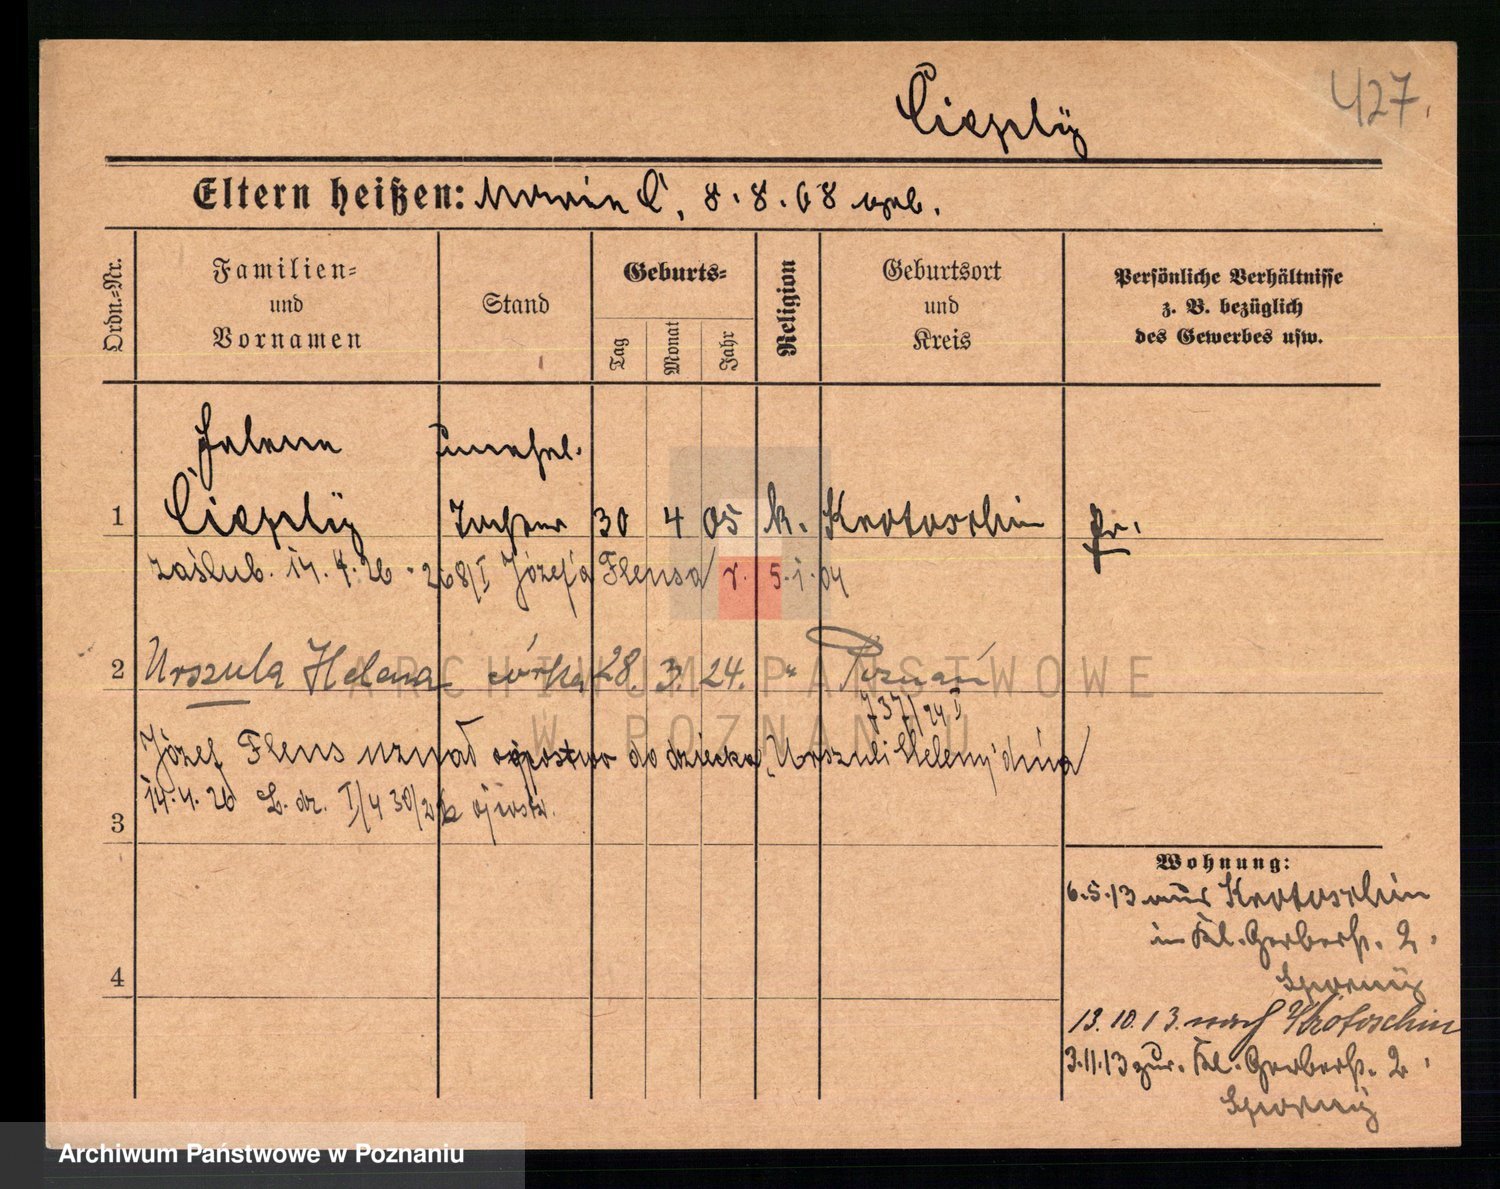 427.
Cieply
Eltern heißen: Maria C. 8.8.68 geb.
Ordn.=Nr.
Familien=
und
Vornamen
Stand
Geburts=
Tag
Monat
Jahr
Religion
Geburtsort
und
Kreis
Persönliche Verhältnisse
z. B. bezüglich
des Gewerbes usw.
Helene unehel.
1 Cieplÿ Tochter 30 4 05 k. Krotoschin Pr.
zaślub. 14.4.26 - 268/I Józefa Flensa r. 5.1.04
2 Urszula Helena córka 28. 3. 24. " Poznań
737/24 I
Józef Flens uznał ojcostwo do dziecka Urszuli Heleny dnia
14.4.26 L. dz. I/4 30/26 ojcostw.
3
4
Wohnung:
6.5.13 aus Krotoschin
in Kl. Gerberst. 2.
13.10.13. nach Krotoschin
3.11.13 zur. Kl. Gerberst. 2.
ARCHIWUM PAŃSTWOWE
W POZNANIU
Archiwum Państwowe w Poznaniu